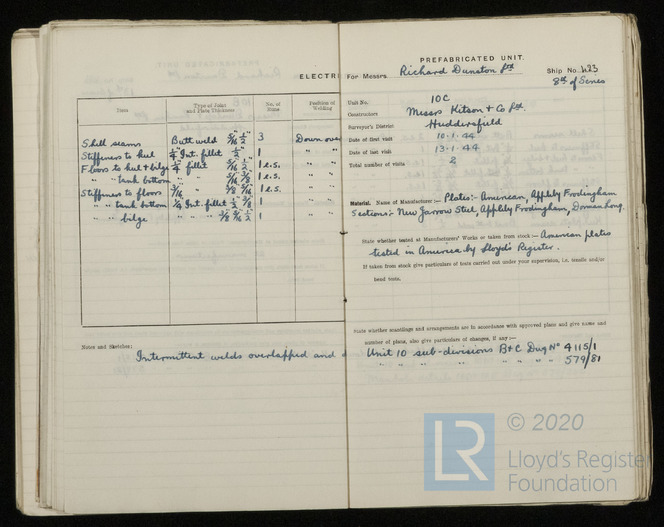 ELECTRI
Item
Type of Joint
and Plate Thickness
No. of
Runs
Position of
Welding
Shell seams Butt weld 5/16" 1/2" 3 Down over
Stiffeners to keel 1/4 Int. fillet 1/2" 1 " "
Floors to keel & bilge 1/4 fillet 5/16 1/2 1 e.s. " "
" " tank bottom " " 5/16 3/8 1 e.s. " "
Stiffeners to floors 3/16 " 5/16 1 e.s. " "
" " tank bottom 1/4 Int. fillet 1/2 3/8 1 " "
" " bilge " " " 3/8 5/16 1/2 1 " "
Notes and Sketches:
Intermittent welds overlapped and
PREFABRICATED UNIT.
For Messrs Richard Dunston Ltd Ship No. 423
8th of Series
Unit No. 10C
Constructors Messrs Kitson & Co Ltd.
Surveyor's District Huddersfield
Date of first visit 10.1.44
Date of last visit 13.1.44
Total number of visits 2
Material. Name of Manufacturer:— Plates:- American, Appleby Frodingham
Sections:- New Jarrow Steel, Appleby Frodingham, Dorman Long.
State whether tested at Manufacturers' Works or taken from stock:— American plates
tested in America by Lloyd's Register.
If taken from stock give particulars of tests carried out under your supervision, i.e. tensile and/or
bend tests.
State whether scantling and arrangements are in accordance with approved plans and give name and
number of plans, also give particulars of changes, if any:—
Unit 10 sub-divisions B & C Dwg No 4115/1
" " " " " " " " 579/81
© 2020
LR
Lloyd's Register
Foundation